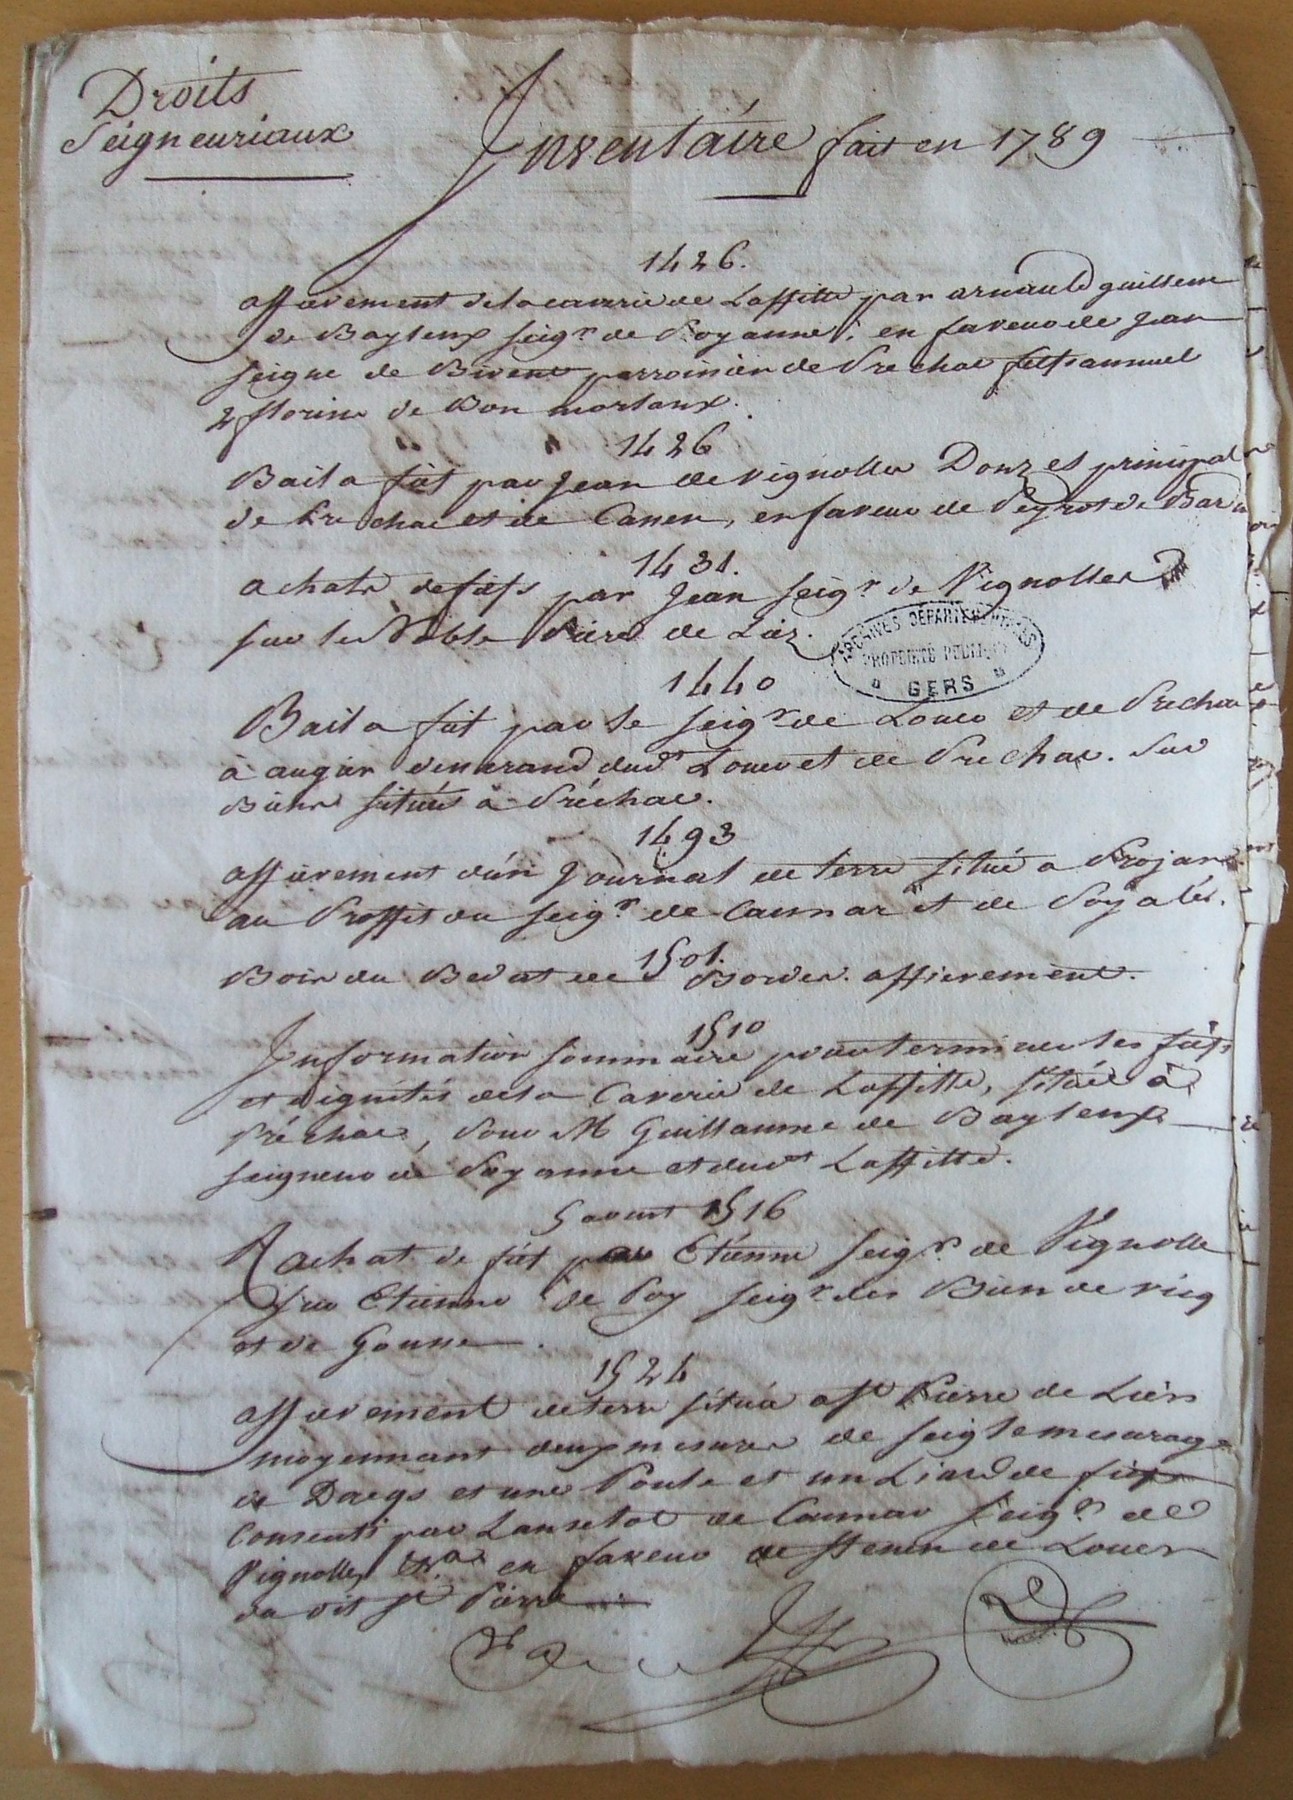 Droits
Seigneuriaux
Inventáire fait en 1789
1426.
affievement de la caverie de Laffitte par arnauld guillem
de Baylenx seigr de Poyanne, en faveur de Jean
seigne de Bivent parroissien de Prechac fief annuel
2 florins de Bon morlanx.
1426
Bail a fief par Jean de vignolles Donzel principal
de Prechac et de Cassen, en faveur de Peyrot de Bar
1431.
achats de fiefs par Jean seigr de Vignolles
sur le Noble Pierre de Lier.
ARCHIVES DÉPARTEMENTALES
PROPRIÉTÉ PUBLIQUE
GERS
1440
Bail a fief par le seigr de Louer et de Prechac
à augier dudt Louer et de Prechac. Sur
Biens situés à Préchac.
1493
affievement d'ún Journal de terre situé a Projan
au Proffit du seigr de Caunar et de Poyalér.
1501.
Bois du Bedat de Bordes. affievement.
1510
Information sommaire pour terminer les fiefs
et dignités de la Caverie de Laffitte, située à
Préchac, pour M Guillaume de Baylenx
seigneur de Poyanne et dudt Laffitte.
5 avust 1516
Rachat de fief par Etienne seigr de Vignolle
sur Etienne de Poy seigr des Biens de vicq
et de Gousse.
1524
affievement de terre située a St Pierre de Lièr
moyennant deux mesures de seigle mesurage
de Dacqs et une Poule et un Liard de fief
Consenti par Lanselot de Caunar Seigr de
Vignolles &a en faveur de de Louer
du dit St Pierre